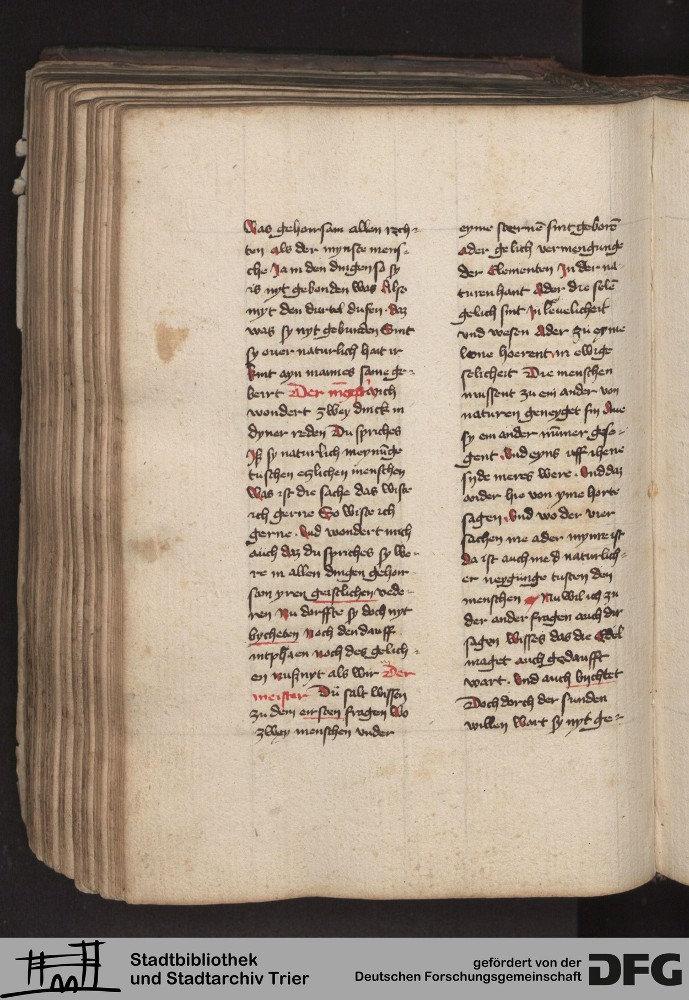 Was gehorsam allen rech-
ten als der mynste mens-
che Ja in den dingen so sy
is nyt gebonden was Alse
myt den durtel dufen. daz
was sy nyt gebunden Sint
sy ouer naturlich hait ir
kint ayn mannes same ge-
berrt Der mich
wondert zwey dinck in
dyner reden Du spriches
Js sy naturlich meynunge
tuschen etzlichen menschen
Was ist die sache das wiste
ich gerne So wiste ich
gerne. Vnd wondert mich
auch daz du spriches sy we-
re in allen dingen gehoir-
sam yren geistlichen vede-
ren Nu dorffte sy doch nyt
bycheten Noch den dauff
intphaen noch des gelich-
en Busnyt als wir Der
meister Du salt wissen
zu dem eirsten fragen Wo
zwey menschen vnder
eyme sternē sint geborē
Ader gelich vermengunge
der Elementen Jn der na-
turen hant Ader die selē
gelich sint Jn lievelicheit
vnd wesen Ader zu eyme
lone hoerent in ewige
selicheit Die menschen
mussent zu ein ander von
naturen geneyget sin
sy ein ander nūmer gese-
gent. Vnd eyns uff ihene
syde meres were. Vnd daz
ander hie von yme horte
sagen. Vnd wo der vier
sachen me ader mynre ist
da ist auch me naturlich-
er neygunge tusten den
menschen Nu wil ich zu
der ander fragen auch dir
sagen Wisses das die Edel
maget auch gedaufft
wart. Vnd auch bychtet
Doch dorch der sunden
willen wart sy nyt ge-
Stadtbibliothek
und Stadtarchiv Trier
gefördert von der
Deutschen Forschungsgemeinschaft
DFG